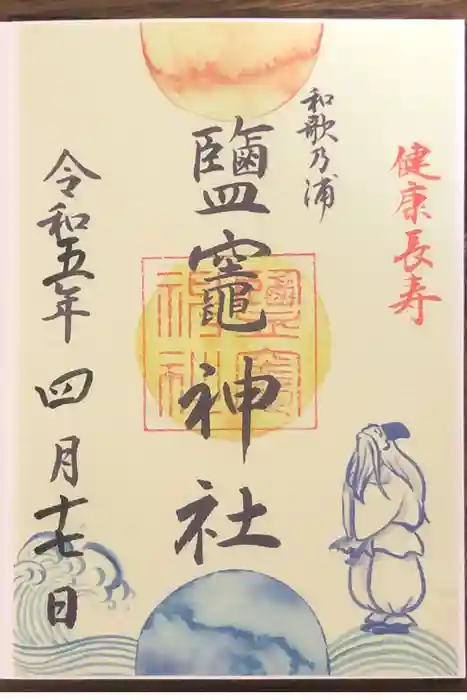 健康長寿
和歌乃浦
鹽竈神社
令和五年四月十七日